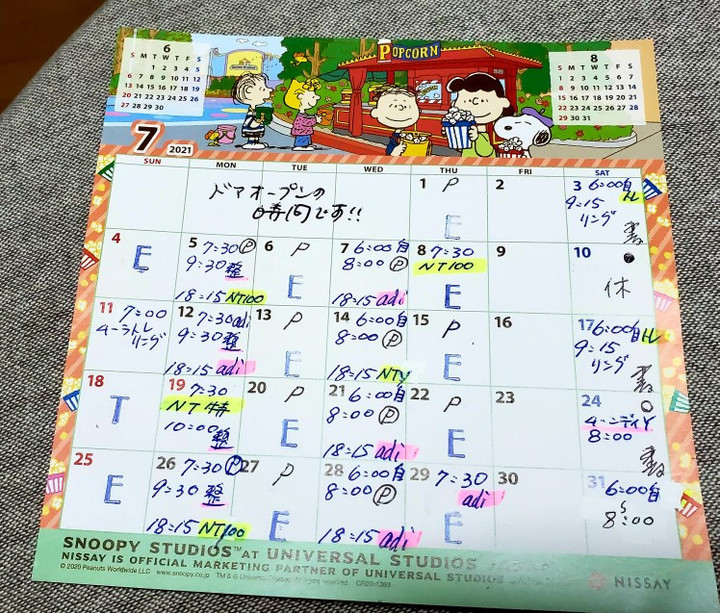 POPCORN
6
S M T W T F S
1 2 3 4 5
6 7 8 9 10 11 12
13 14 15 16 17 18 19
20 21 22 23 24 25 26
27 28 29 30
8
S M T W T F S
1 2 3 4 5 6 7
8 9 10 11 12 13 14
15 16 17 18 19 20 21
22 23 24 25 26 27 28
29 30 31
7 2021
SUN MON TUE WED THU FRI SAT
ドアオープンの
時間です!!
1 P
E
2
3 6:00自
トレ
9:15
リング
4
E
5 7:30 P
9:30 整
18:15 NT100
6 P
E
7 6:00自
8:00 P
18:15 adi
8 7:30
NT100
E
9
10
休
11 7:00
4-ラトレ
リング
12 7:30 adi
9:30 整
18:15 adi
13 P
E
14 6:00自
8:00 P
18:15 NTγ
15 P
E
16
17 6:00自トレ
9:15
リング
18
T
19 7:30
NT特
10:00 整
20 P
E
21 6:00自
8:00 P
18:15 adi
22 P
E
23
24
8:00
25
E
26 7:30 P
9:30 整
18:15 NT100
27 P
E
28 6:00自
8:00 P
18:15 adi
29 7:30
adi
E
30
31 6:00自
8:00
SNOOPY STUDIOS™ AT UNIVERSAL STUDIOS
NISSAY IS OFFICIAL MARKETING PARTNER OF UNIVERSAL STUDIOS
© 2020 Peanuts Worldwide LLC www.snoopy.co.jp TM & © Universal Studios. All rights reserved.
NISSAY